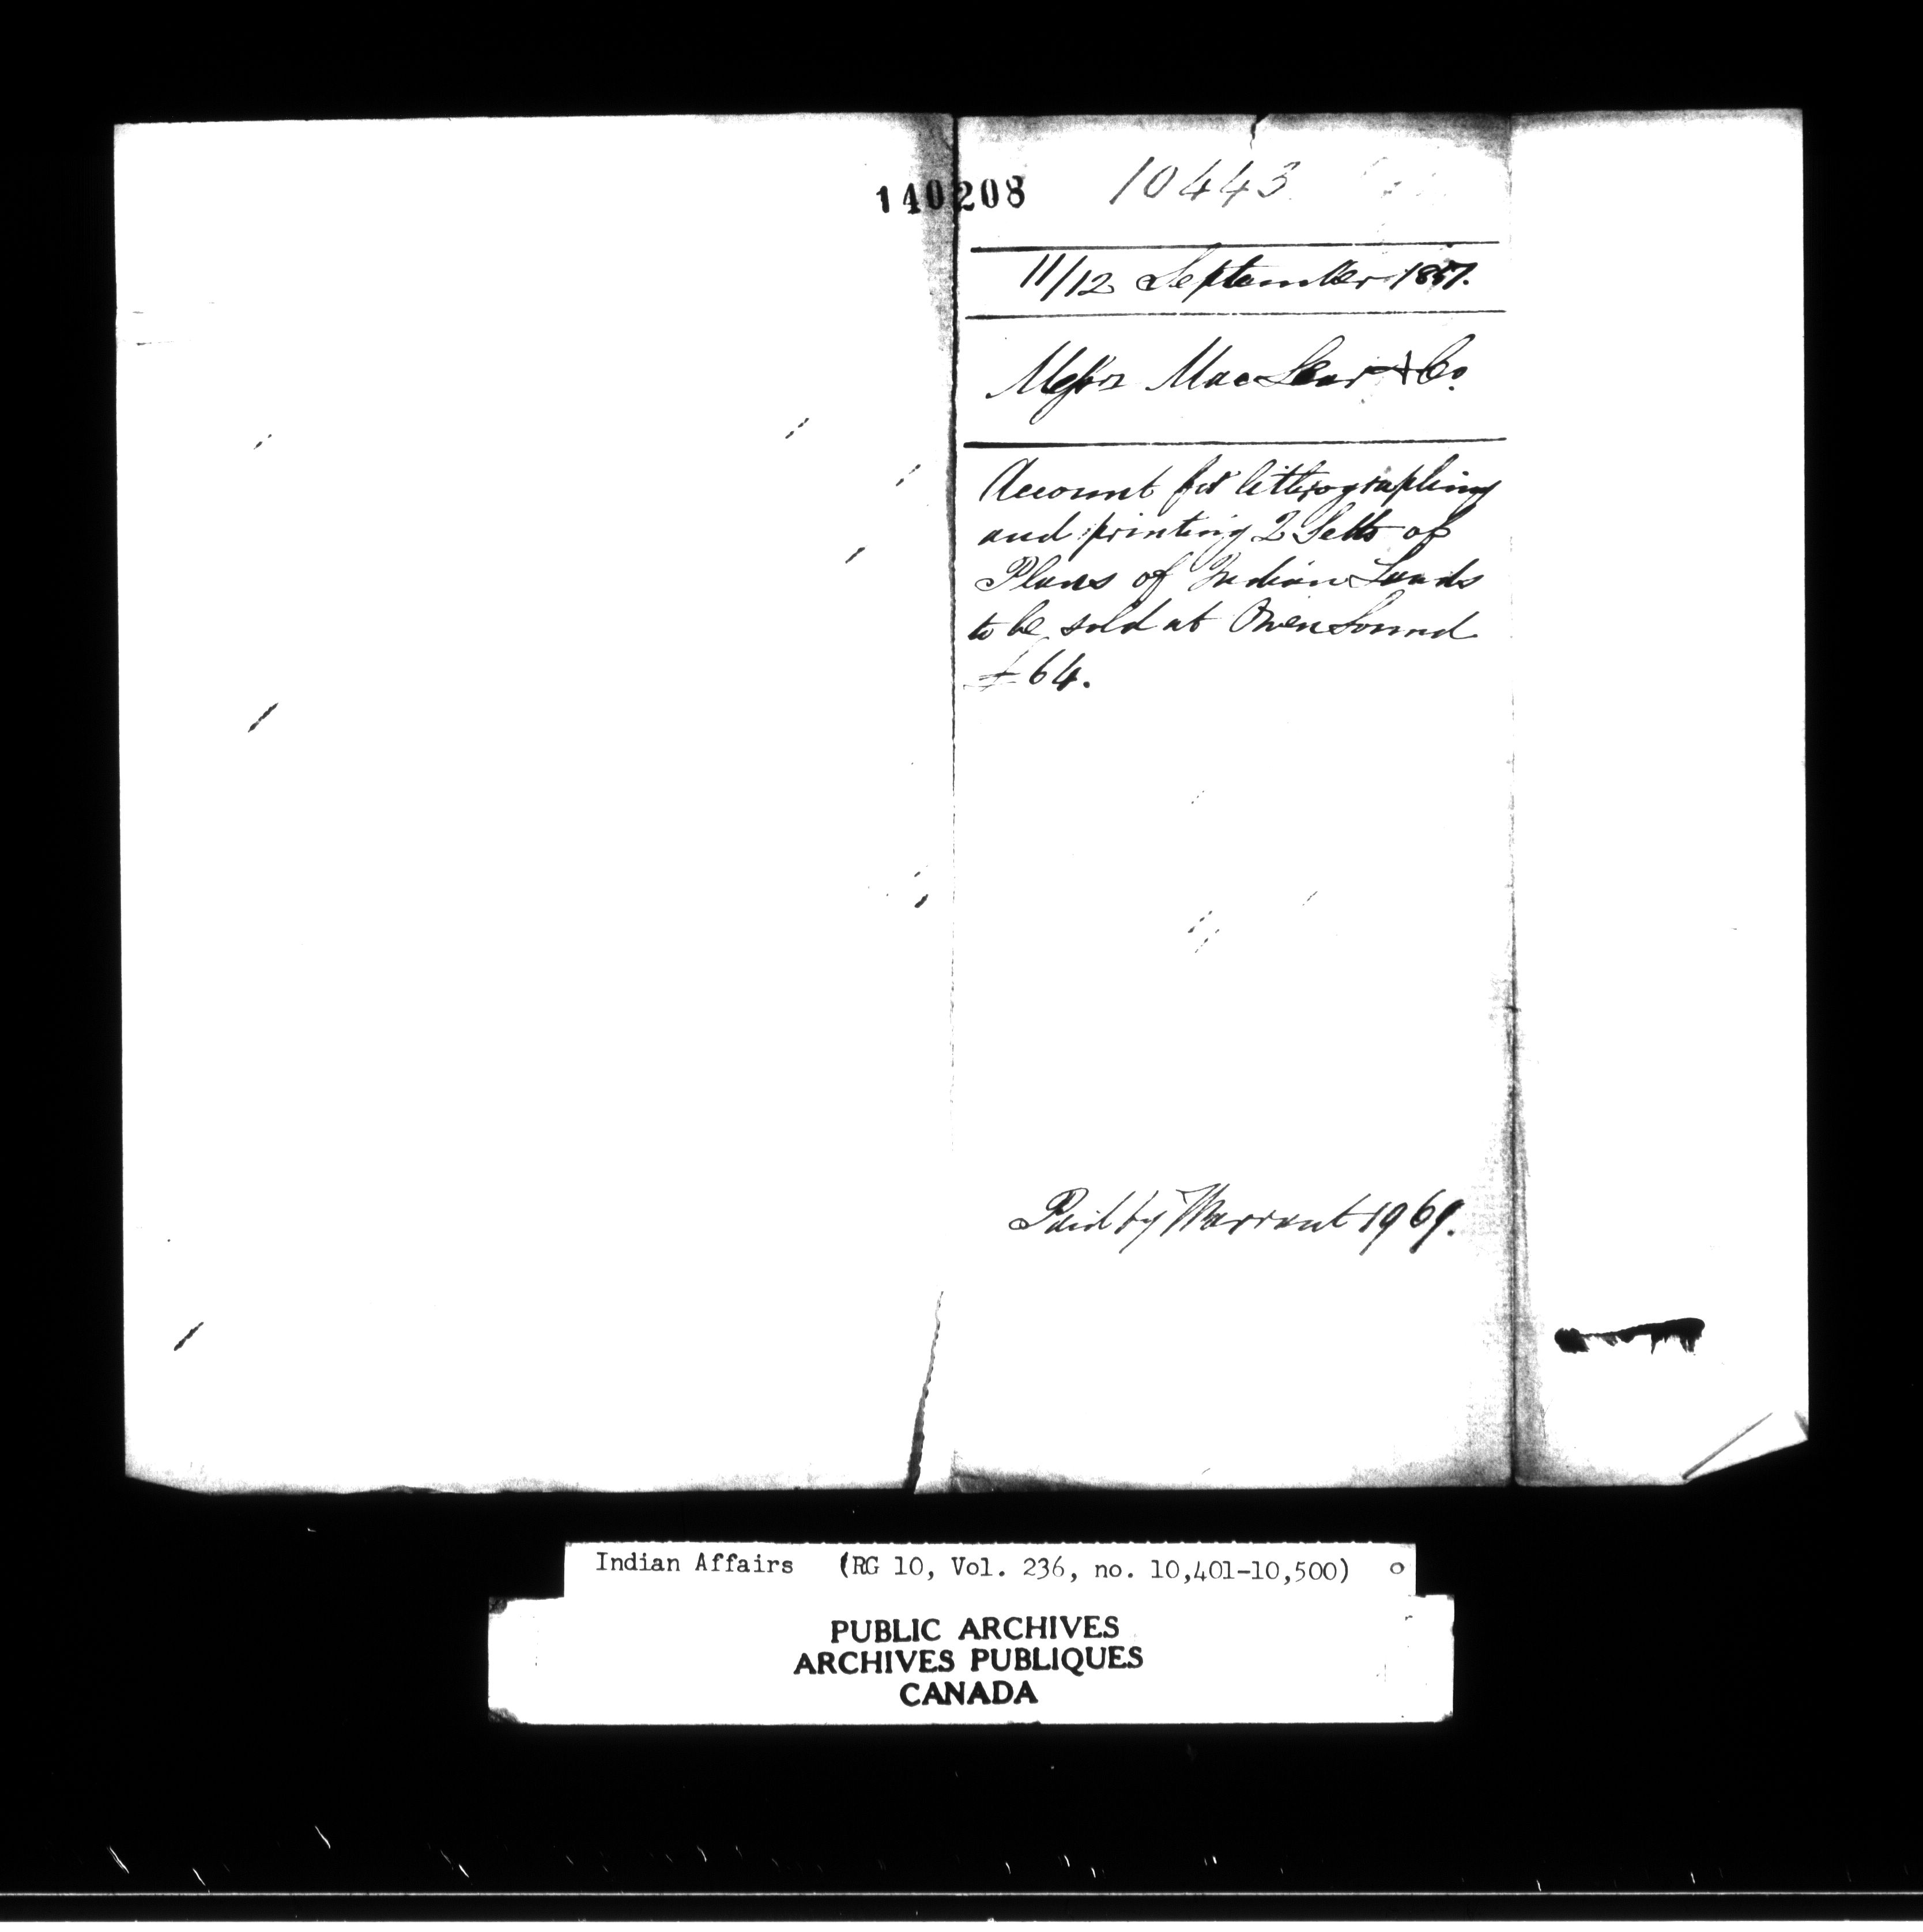 140208
10443
11/12 September 1857.
Messrs MacLear & Co.
Account for lithographing
and printing 2 Setts of
Plans of Indian Lands
to be sold at Owen Sound
£64.
Paid by Warrant 1969.
Indian Affairs (RG 10, Vol. 236, no. 10,401-10,500)
PUBLIC ARCHIVES
ARCHIVES PUBLIQUES
CANADA